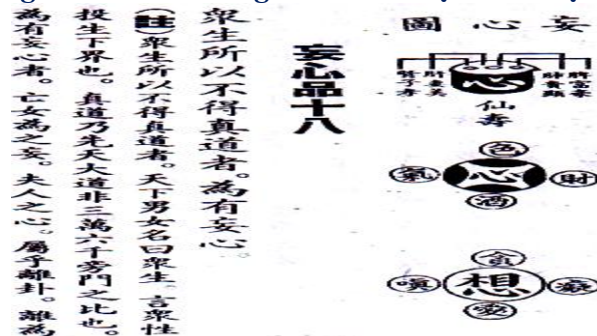 妄心圖
心
仙壽
色
氣 心 財
酒
貪
嗔 想 癡
妄心品十八
眾生所以不得真道者。為有妄心。
(註)眾生所以不得真道者。天下男女名曰眾生。言眾性
投生下界也。真道乃先天大道非三萬六千旁門之比也。
為有妄心者。亡女為之妄。夫人之心。屬乎離卦。離為